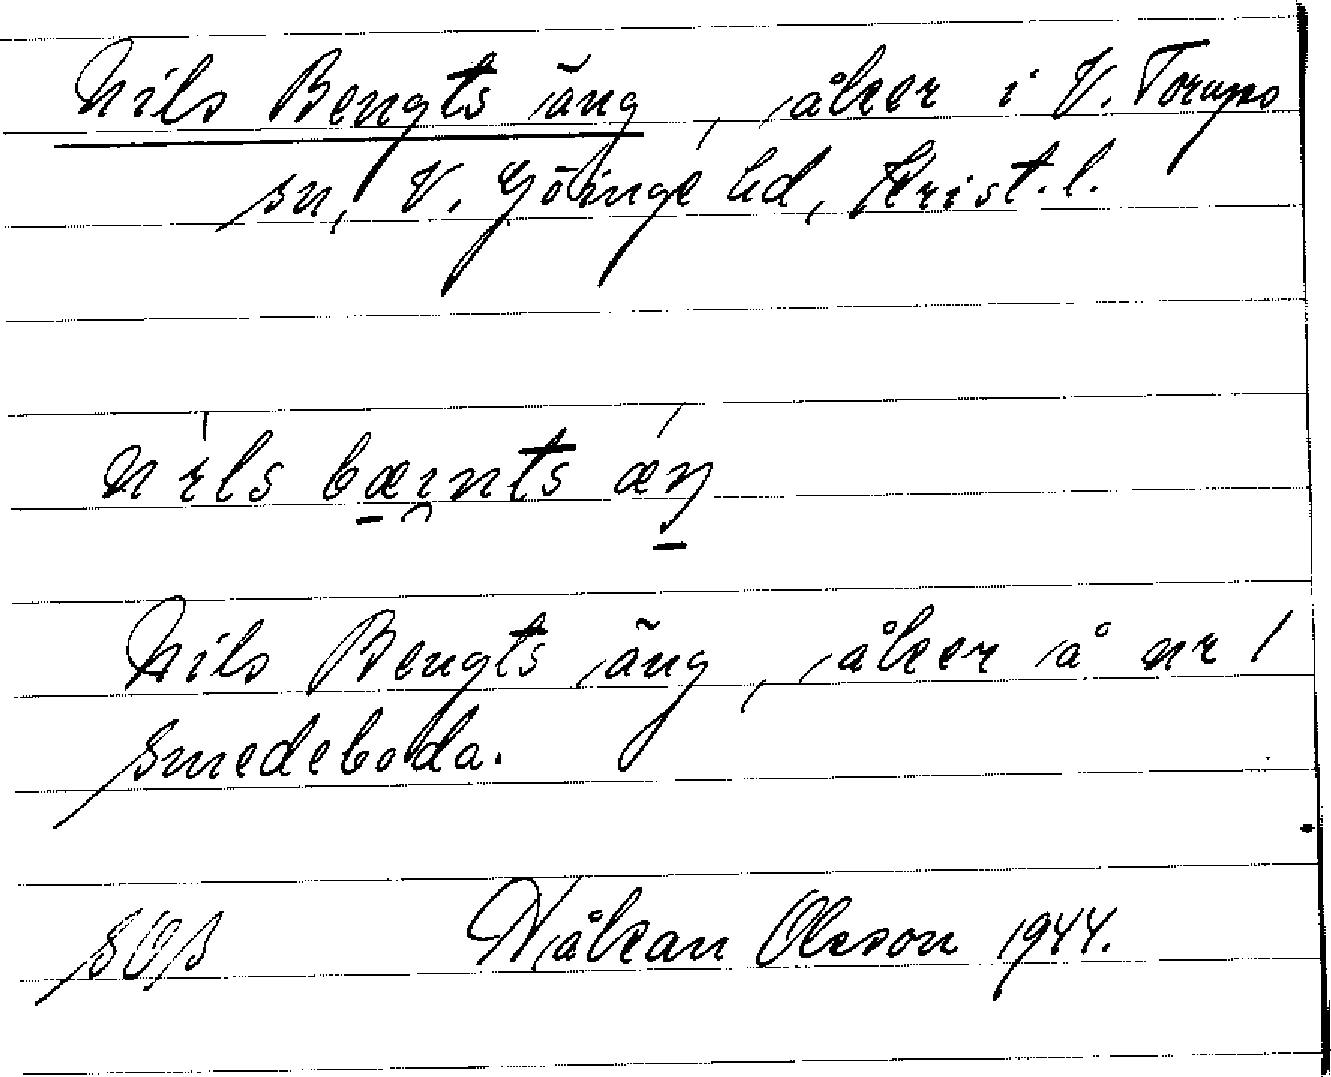 Nils Bengts äng, åker i V. Torups
sn, V. Göinge hd, Krist. l.
nils bæınts æŋ
Nils Bengts äng, åker å nr 1
Smedeboda.
Håkan Olsson 1944.